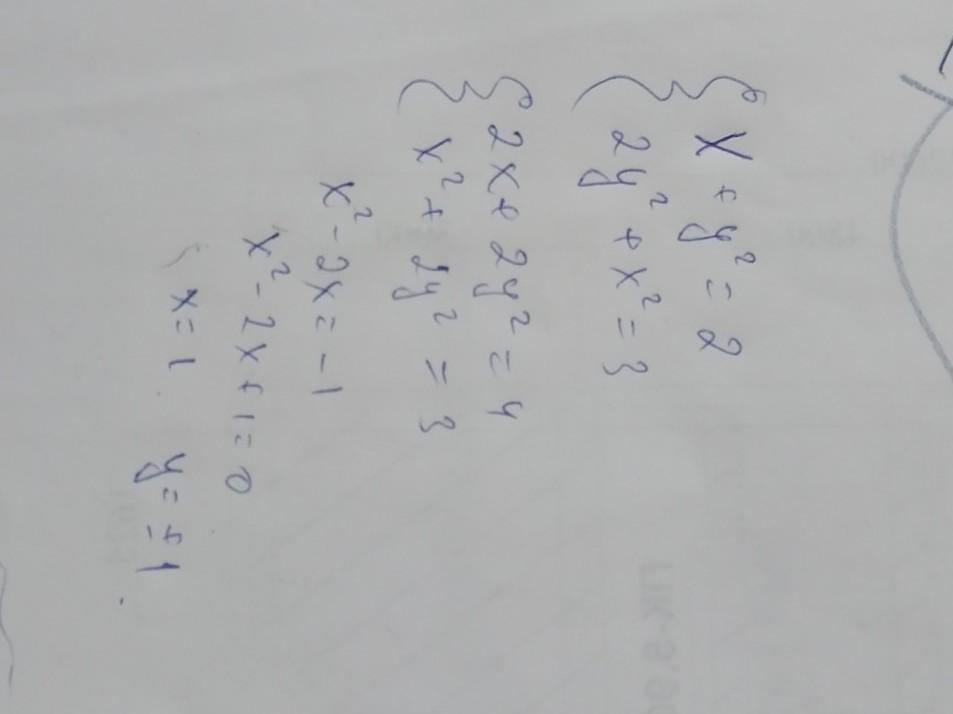 x + y² = 2
2y² + x² = 3
2x + 2y² = 4
x² + 2y² = 3
x² - 2x = -1
x² - 2x + 1 = 0
x = 1 y = ±1